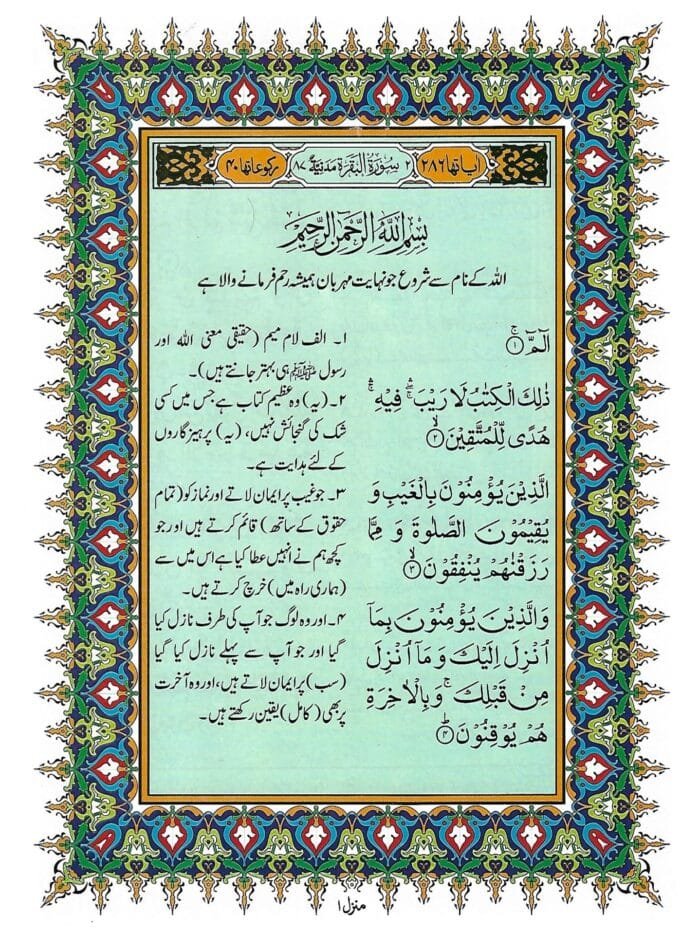 اٰیاتھا ۲۸۶ ۲ سُوْرَۃُ الْبَقَرَۃِ مَدَنِیَّۃٌ ۸۷ رکوعاتھا ۴۰
بِسْمِ اللّٰهِ الرَّحْمٰنِ الرَّحِیْمِ
اللہ کے نام سے شروع جو نہایت مہربان ہمیشہ رحم فرمانے والا ہے
الٓمّٓ ۚ﴿۱﴾
ذٰلِكَ الْكِتٰبُ لَا رَیْبَ ۛۖۚ فِیْهِ ۛۚ
هُدًی لِّلْمُتَّقِیْنَ ۙ﴿۲﴾
الَّذِیْنَ یُؤْمِنُوْنَ بِالْغَیْبِ وَ
یُقِیْمُوْنَ الصَّلٰوةَ وَ مِمَّا
رَزَقْنٰهُمْ یُنْفِقُوْنَ ۙ﴿۳﴾
وَالَّذِیْنَ یُؤْمِنُوْنَ بِمَاۤ
اُنْزِلَ اِلَیْكَ وَ مَاۤ اُنْزِلَ
مِنْ قَبْلِكَ ۚ وَ بِالْاٰخِرَةِ
هُمْ یُوْقِنُوْنَ ؕ﴿۴﴾
۱۔ الف لام میم (حقیقی معنی اللہ اور
رسول ﷺ ہی بہتر جانتے ہیں)۔
۲۔ (یہ) وہ عظیم کتاب ہے جس میں کسی
شک کی گنجائش نہیں، (یہ) پرہیزگاروں
کے لئے ہدایت ہے۔
۳۔ جو غیب پر ایمان لاتے اور نماز کو (تمام
حقوق کے ساتھ) قائم کرتے ہیں اور جو
کچھ ہم نے انہیں عطا کیا ہے اس میں سے
(ہماری راہ میں) خرچ کرتے ہیں۔
۴۔ اور وہ لوگ جو آپ کی طرف نازل کیا
گیا اور جو آپ سے پہلے نازل کیا گیا
(سب) پر ایمان لاتے ہیں، اور وہ آخرت
پر بھی (کامل) یقین رکھتے ہیں۔
منزل ۱